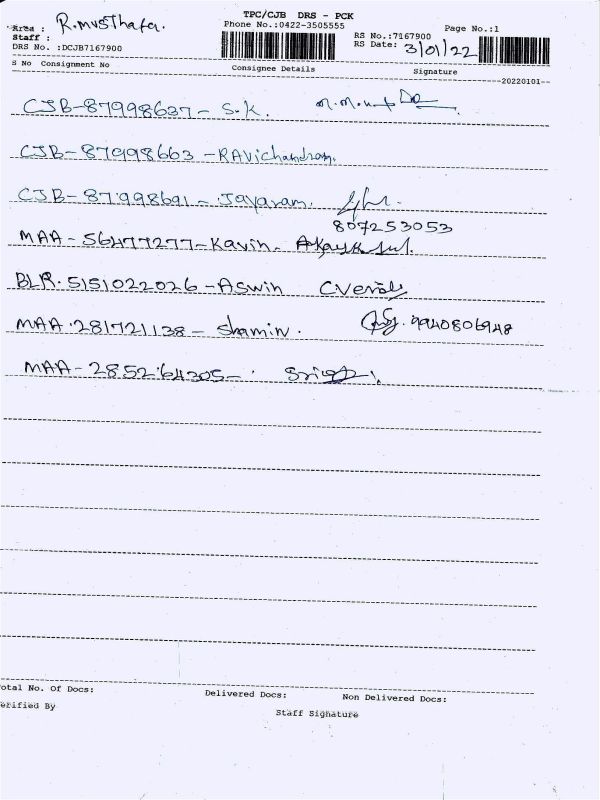 TPC/CJB DRS - PCK
Area : R.musthafa.
Phone No.:0422-3505555
Page No.:1
Staff :
RS No.:7167900
DRS No. :DCJB7167900
RS Date: 3/01/22
S No Consignment No Consignee Details Signature
20220101
CJB-87998637- S.K.
CJB-87998663 -RAvichandran.
CJB-87998691- Jayaram.
807253053
MAA-56477277-Kavin.
BLR.5151022026-Aswin
MAA.281721138- Shamin. 9940806948
MAA-285264305-
otal No. Of Docs: Delivered Docs: Non Delivered Docs:
erified By
Staff Signature